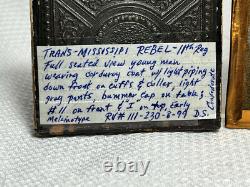 TRANS-MISSISSIPI REBEL - 11th Reg
Full seated view young man
wearing corduroy coat w/ light piping
down front on cuffs & collar, light
gray pants, bummer cap on table &
#11 on front & I on top, Early
Melainotype RV# 111-230-8-99 D.S.
Confederate